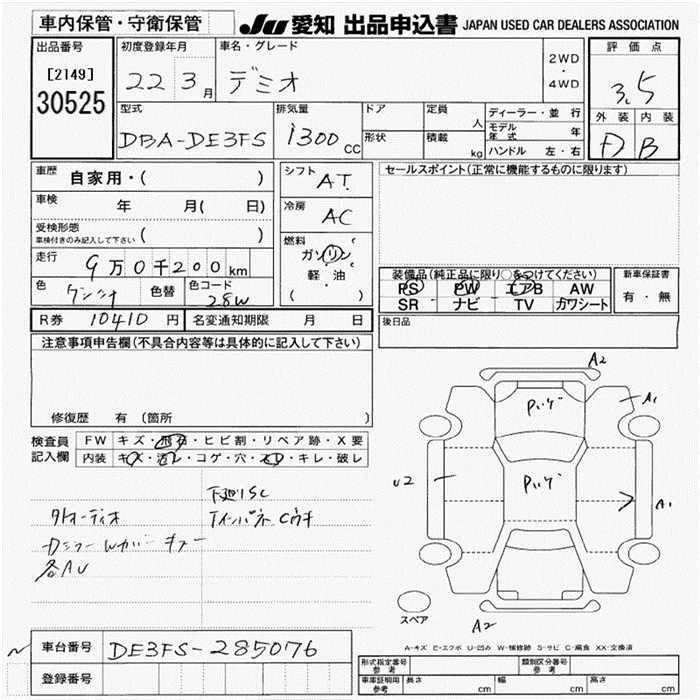 車内保管・守衛保管
JU 愛知 出品申込書 JAPAN USED CAR DEALERS ASSOCIATION
出品番号
[2149]
30525
初度登録年月
22 3月
車名・グレード
デミオ
2WD
・
4WD
評価点
3.5
外装 内装
D B
型式
DBA-DE3FS
排気量
1300 CC
ドア
形状
定員 人
積載 kg
ディーラー・並行
モデル年式 年
ハンドル 左・右
車歴
自家用・( )
車検 年 月( 日)
受検形態
車検付きのみ記入して下さい ( )
走行 9万0千200km
色
色替
色コード
28W
シフト
AT
冷房
AC
燃料
ガソリン
軽・油
( )
セールスポイント(正常に機能するものに限ります)
装備品(純正品に限り○をつけてください)
PS PW エアB AW
SR ナビ TV カワシート
新車保証書
有・無
R券 10410 円 名変通知期限 月 日
後日品
注意事項申告欄(不具合内容等は具体的に記入して下さい)
修復歴 有 (箇所
検査員
記入欄
FW キズ・飛石・ヒビ割・リペア跡・X要
内装 キズ・汚レ・コゲ・穴・スレ・キレ・破レ
下廻リSC
外オーディオ
各AU
A2
A1
Pハゲ
U2
Pハゲ
A1
スペア
A2
A-キズ E-エクボ U-凹み W-補修跡 S-サビ C-腐食 XX-交換済
車台番号 DE3FS-285076
登録番号
形式指定番号
参考
類別区分番号
参考
車庫証明用
参考
長さ cm 幅 cm 高さ cm